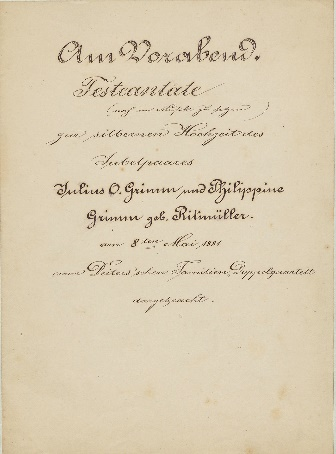 Am Vorabend.
Festcantate
(noch in Musik zu setzen)
zur silbernen Hochzeit des
Jubelpaares
Julius O. Grimm und Philippine
Grimm geb. Ritmüller.
am 8ten Mai, 1881
vom Deiters'schen Familien-Doppelquartett
dargebracht.